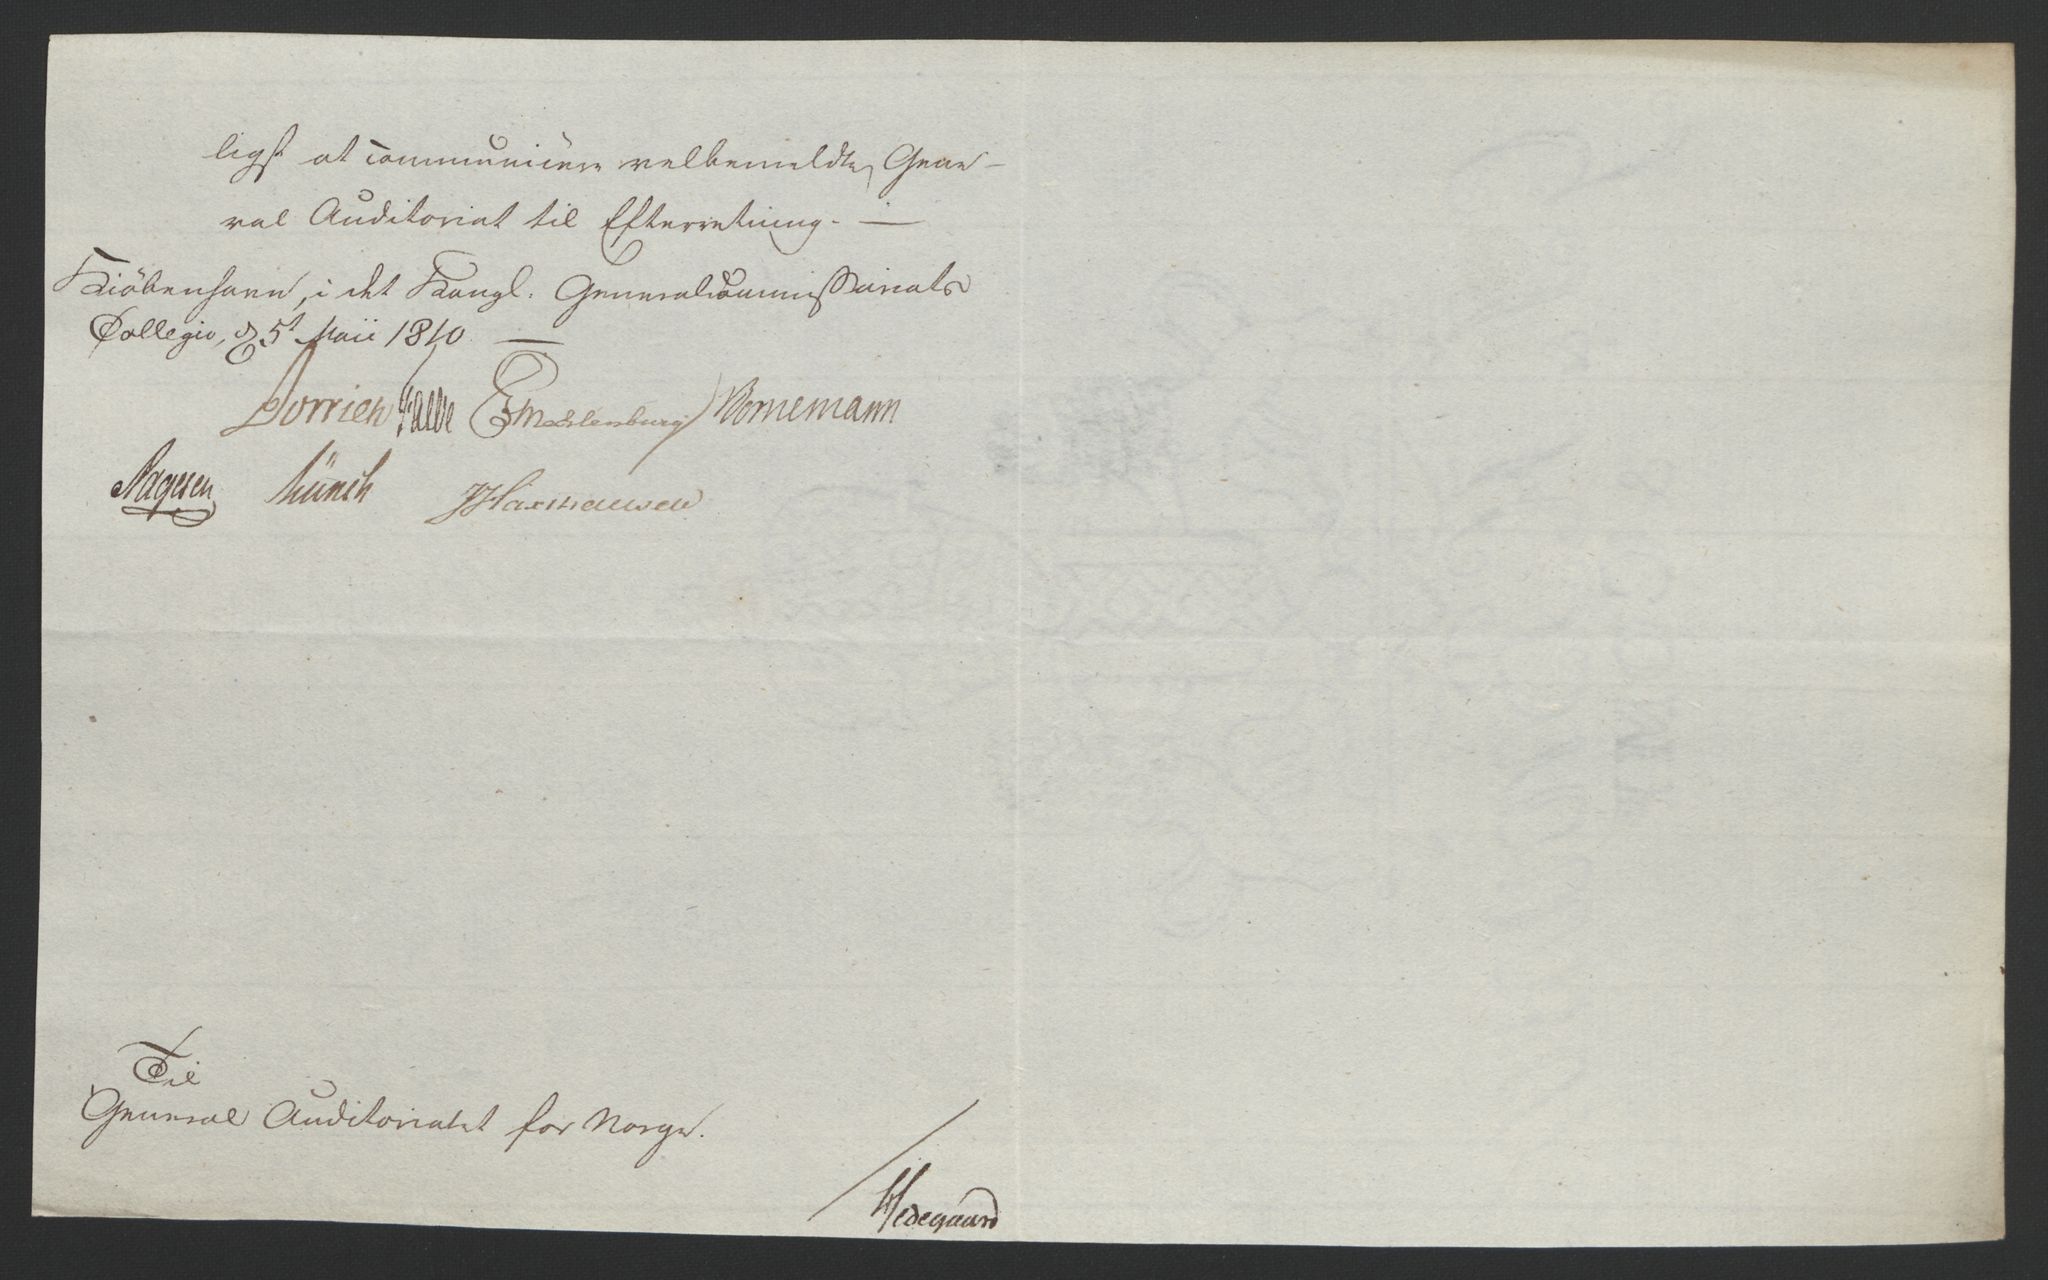 ligst at communicere velbemeldte Gene-
ral Auditoriat til Efterretning. —
Kiöbenhavn, i det Kongl. Generalcommissariats
Collegio, d 5t Maii 1810. —
Dorrien Falbe Mechlenburg Bornemann
Aagesen Münch Haxthausen
Til
General Auditoriatet for Norge.
Hedegaard